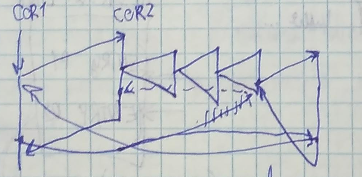 COR1
COR2